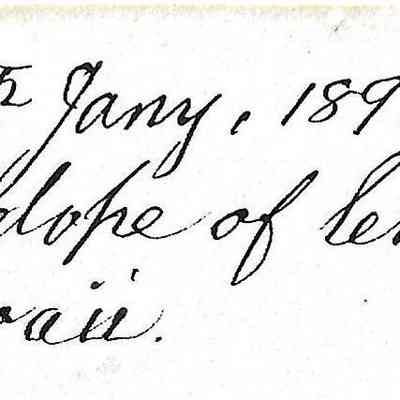 Jany, 189
lope of le
aii.